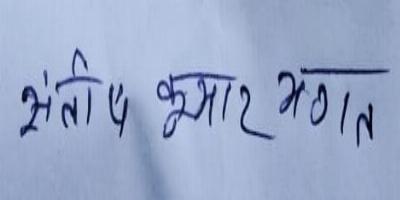 संतोष कुमार भगत